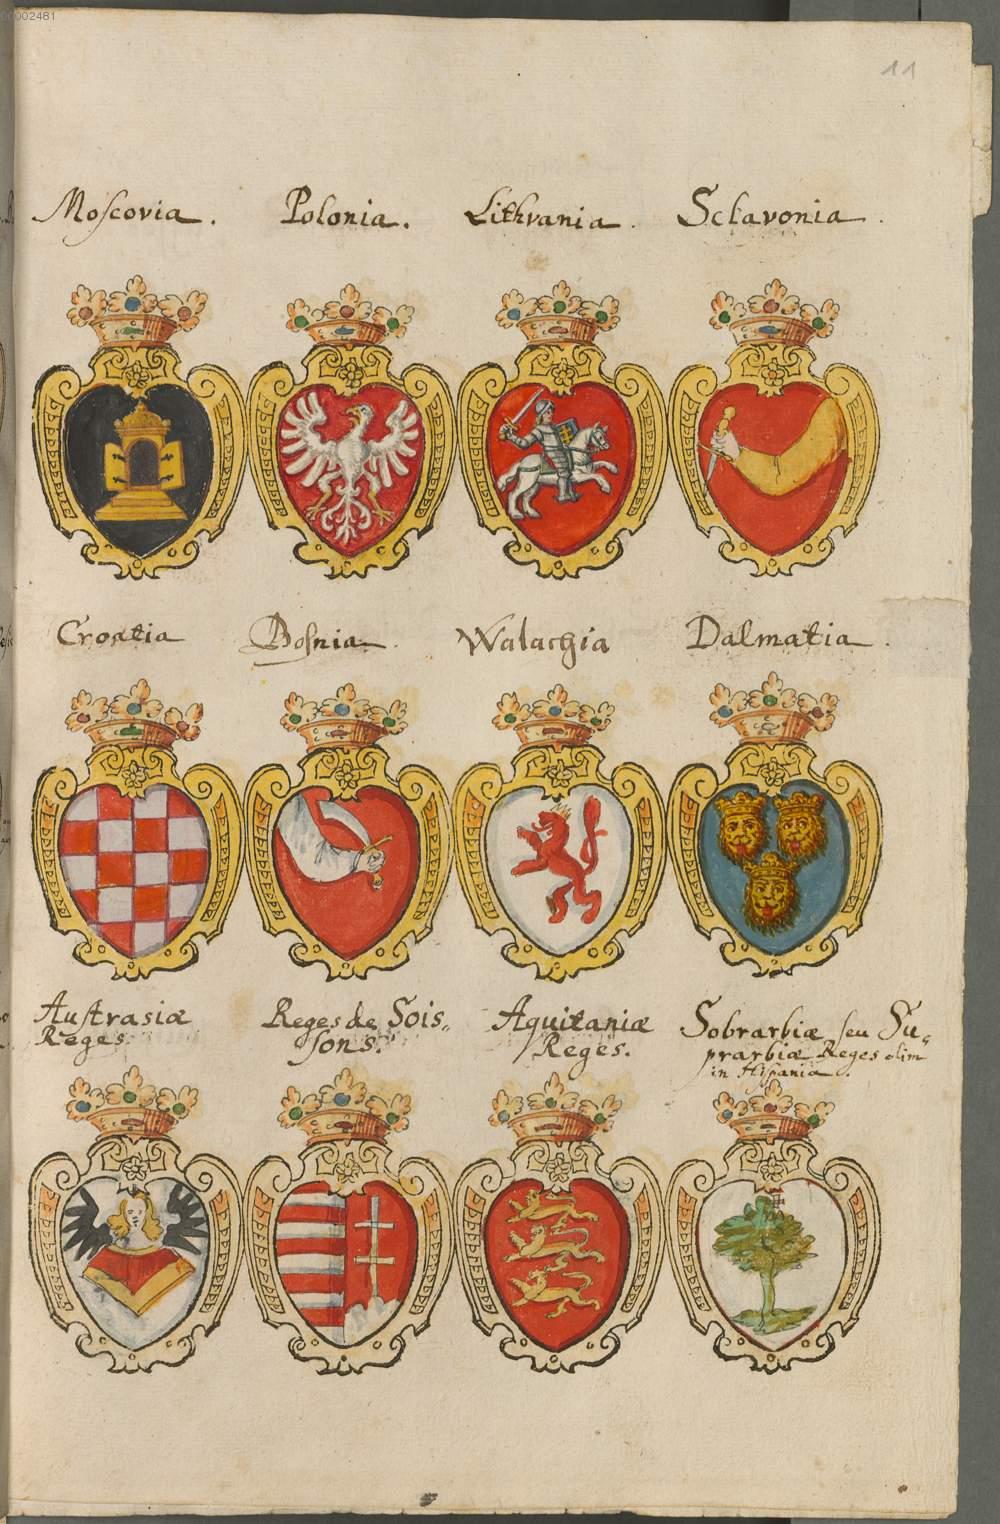 00002481
11
Moscovia. Polonia. Lithvania. Sclavonia.
Croatia Bosnia. Walachia Dalmatia.
Austrasiæ
Reges.
Reges de Sois„
sons.
Aquitaniæ
Reges.
Sobrarbiæ seu Su„
prarbiæ Reges olim
in Hispania.